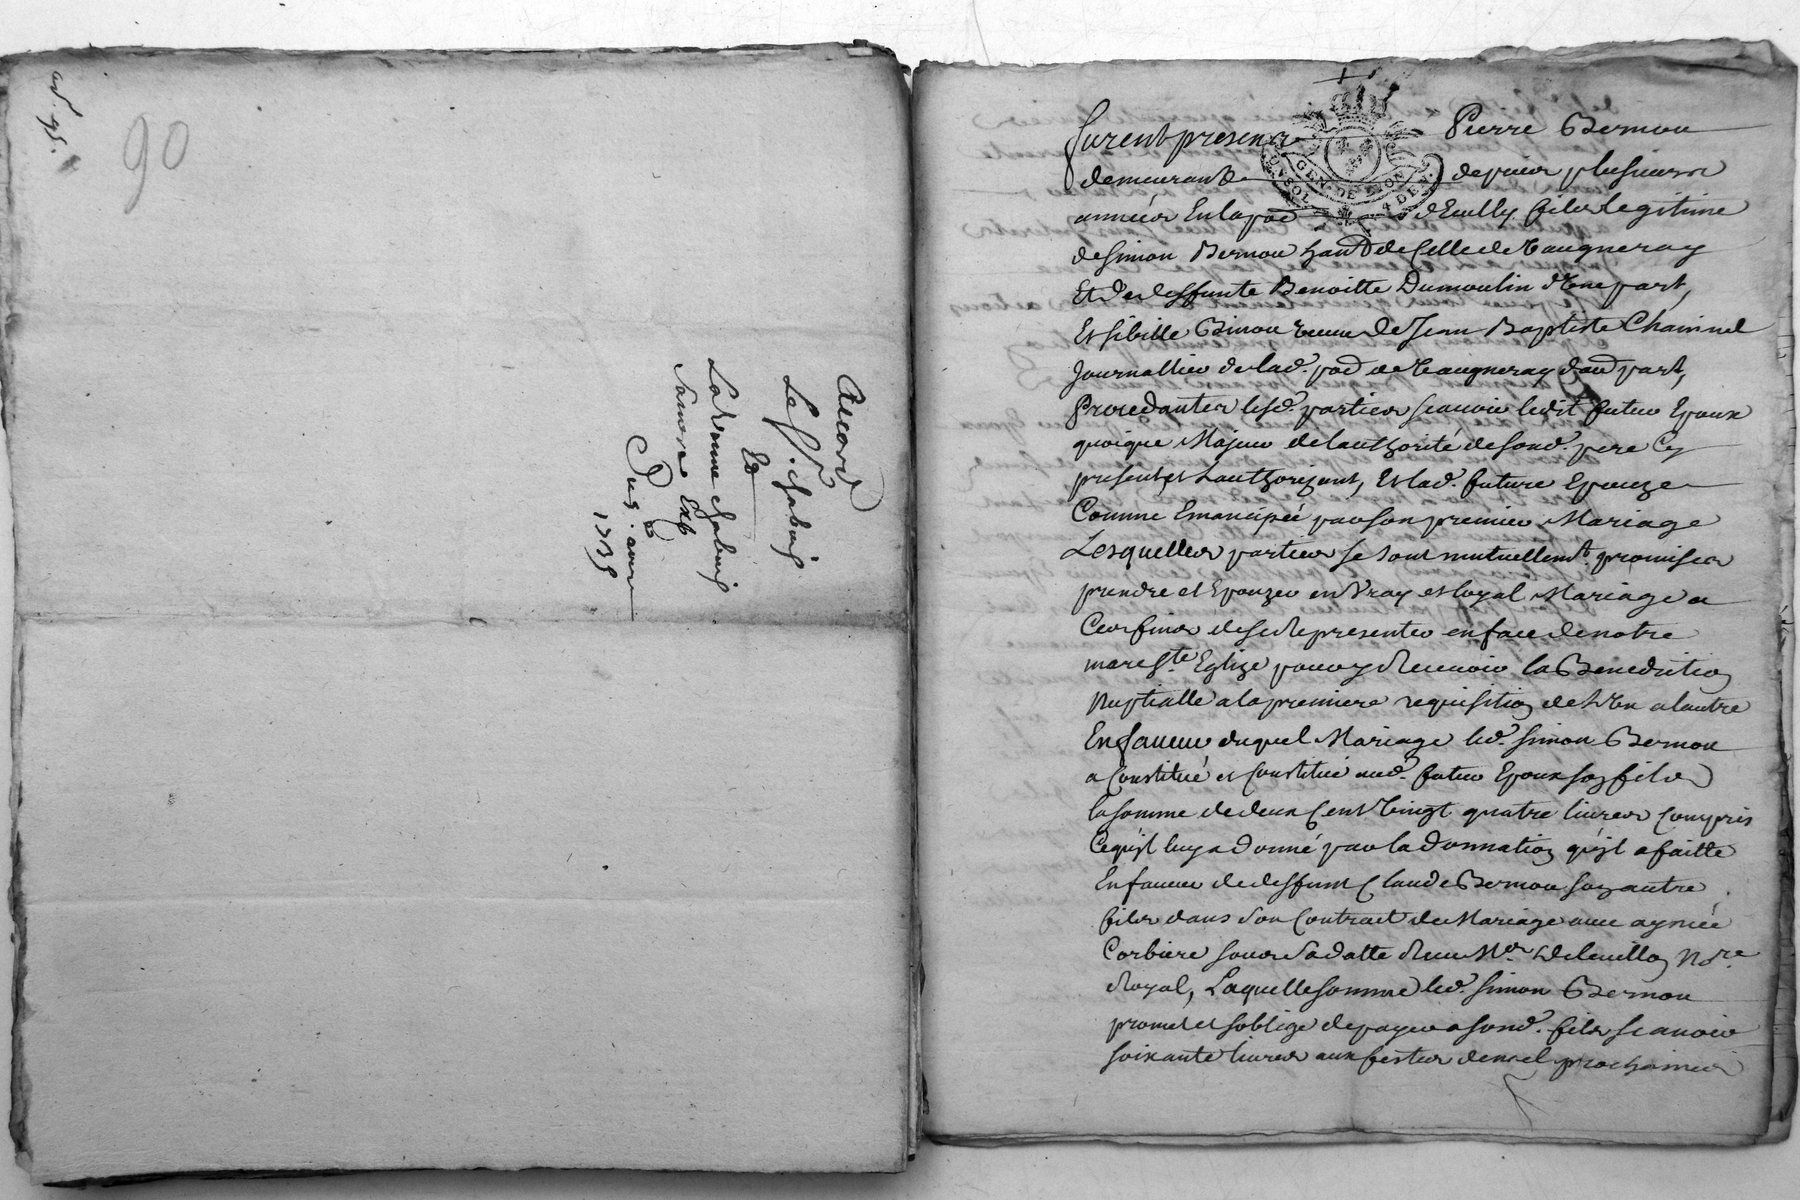 90
Accord
Le Sr. chabuis
Et
La Venne chabuis
1735
furent presens Pierre Bernou
demeurant depuis plusieurs
années En la parr d'Eculy fils legitime
de Simon Bernou habt de Celle de Vaugneray
Et de deffunte Benoitte Dumoulin d'Une part,
Et sibille Binou veuve de Jean Baptiste Chaninel
Journallier de lad. parr de Vaugneray d'aud part,
Procedantes lesd. parties scavoir ledit futur Epoux
quoique Majeur de l'authorité de sond. pere Cy
present et l'authorizant, Et lad. future Epouze
Comme Emancipée par son premier Mariage
Lesquelles parties se sont mutuellemt. promises
prendre et Epouzer en Vray et loyal Mariage a
Ces fins de se Representer en face de notre
mere Ste Eglize pour y Recevoir la Benediction
Nuptialle a la premiere requisition de L'Un a lautre
En faveur duquel Mariage led. Simon Bernou
a Constitué et Constitue aud. futur Epoux son fils
la somme de deux Cent Vingt quatre livres Compris
Ce qu'il luy a donné par la donnation qu'il a faitte
En faveur de deffunt Claude Bernou son autre
fils dans son Contract de Mariage avec aymée
Corbiere sous sa datte Receu Me. Nore.
Royal, Laquelle somme led. Simon Bernou
promet et soblige de payer a sond. fils scavoir
soixante livres aux festes de noel prochaines